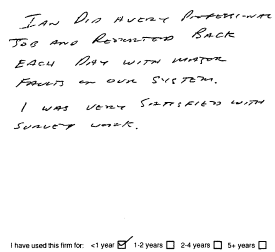 IAN DID A VERY PROFESSIONAL
JOB AND REPORTED BACK
EACH DAY WITH MAJOR
FAULTS ON OUR SYSTEM.
I WAS VERY SATISFIED WITH
SURVEY WORK.
I have used this firm for: <1 year ☑ 1-2 years ☐ 2-4 years ☐ 5+ years ☐